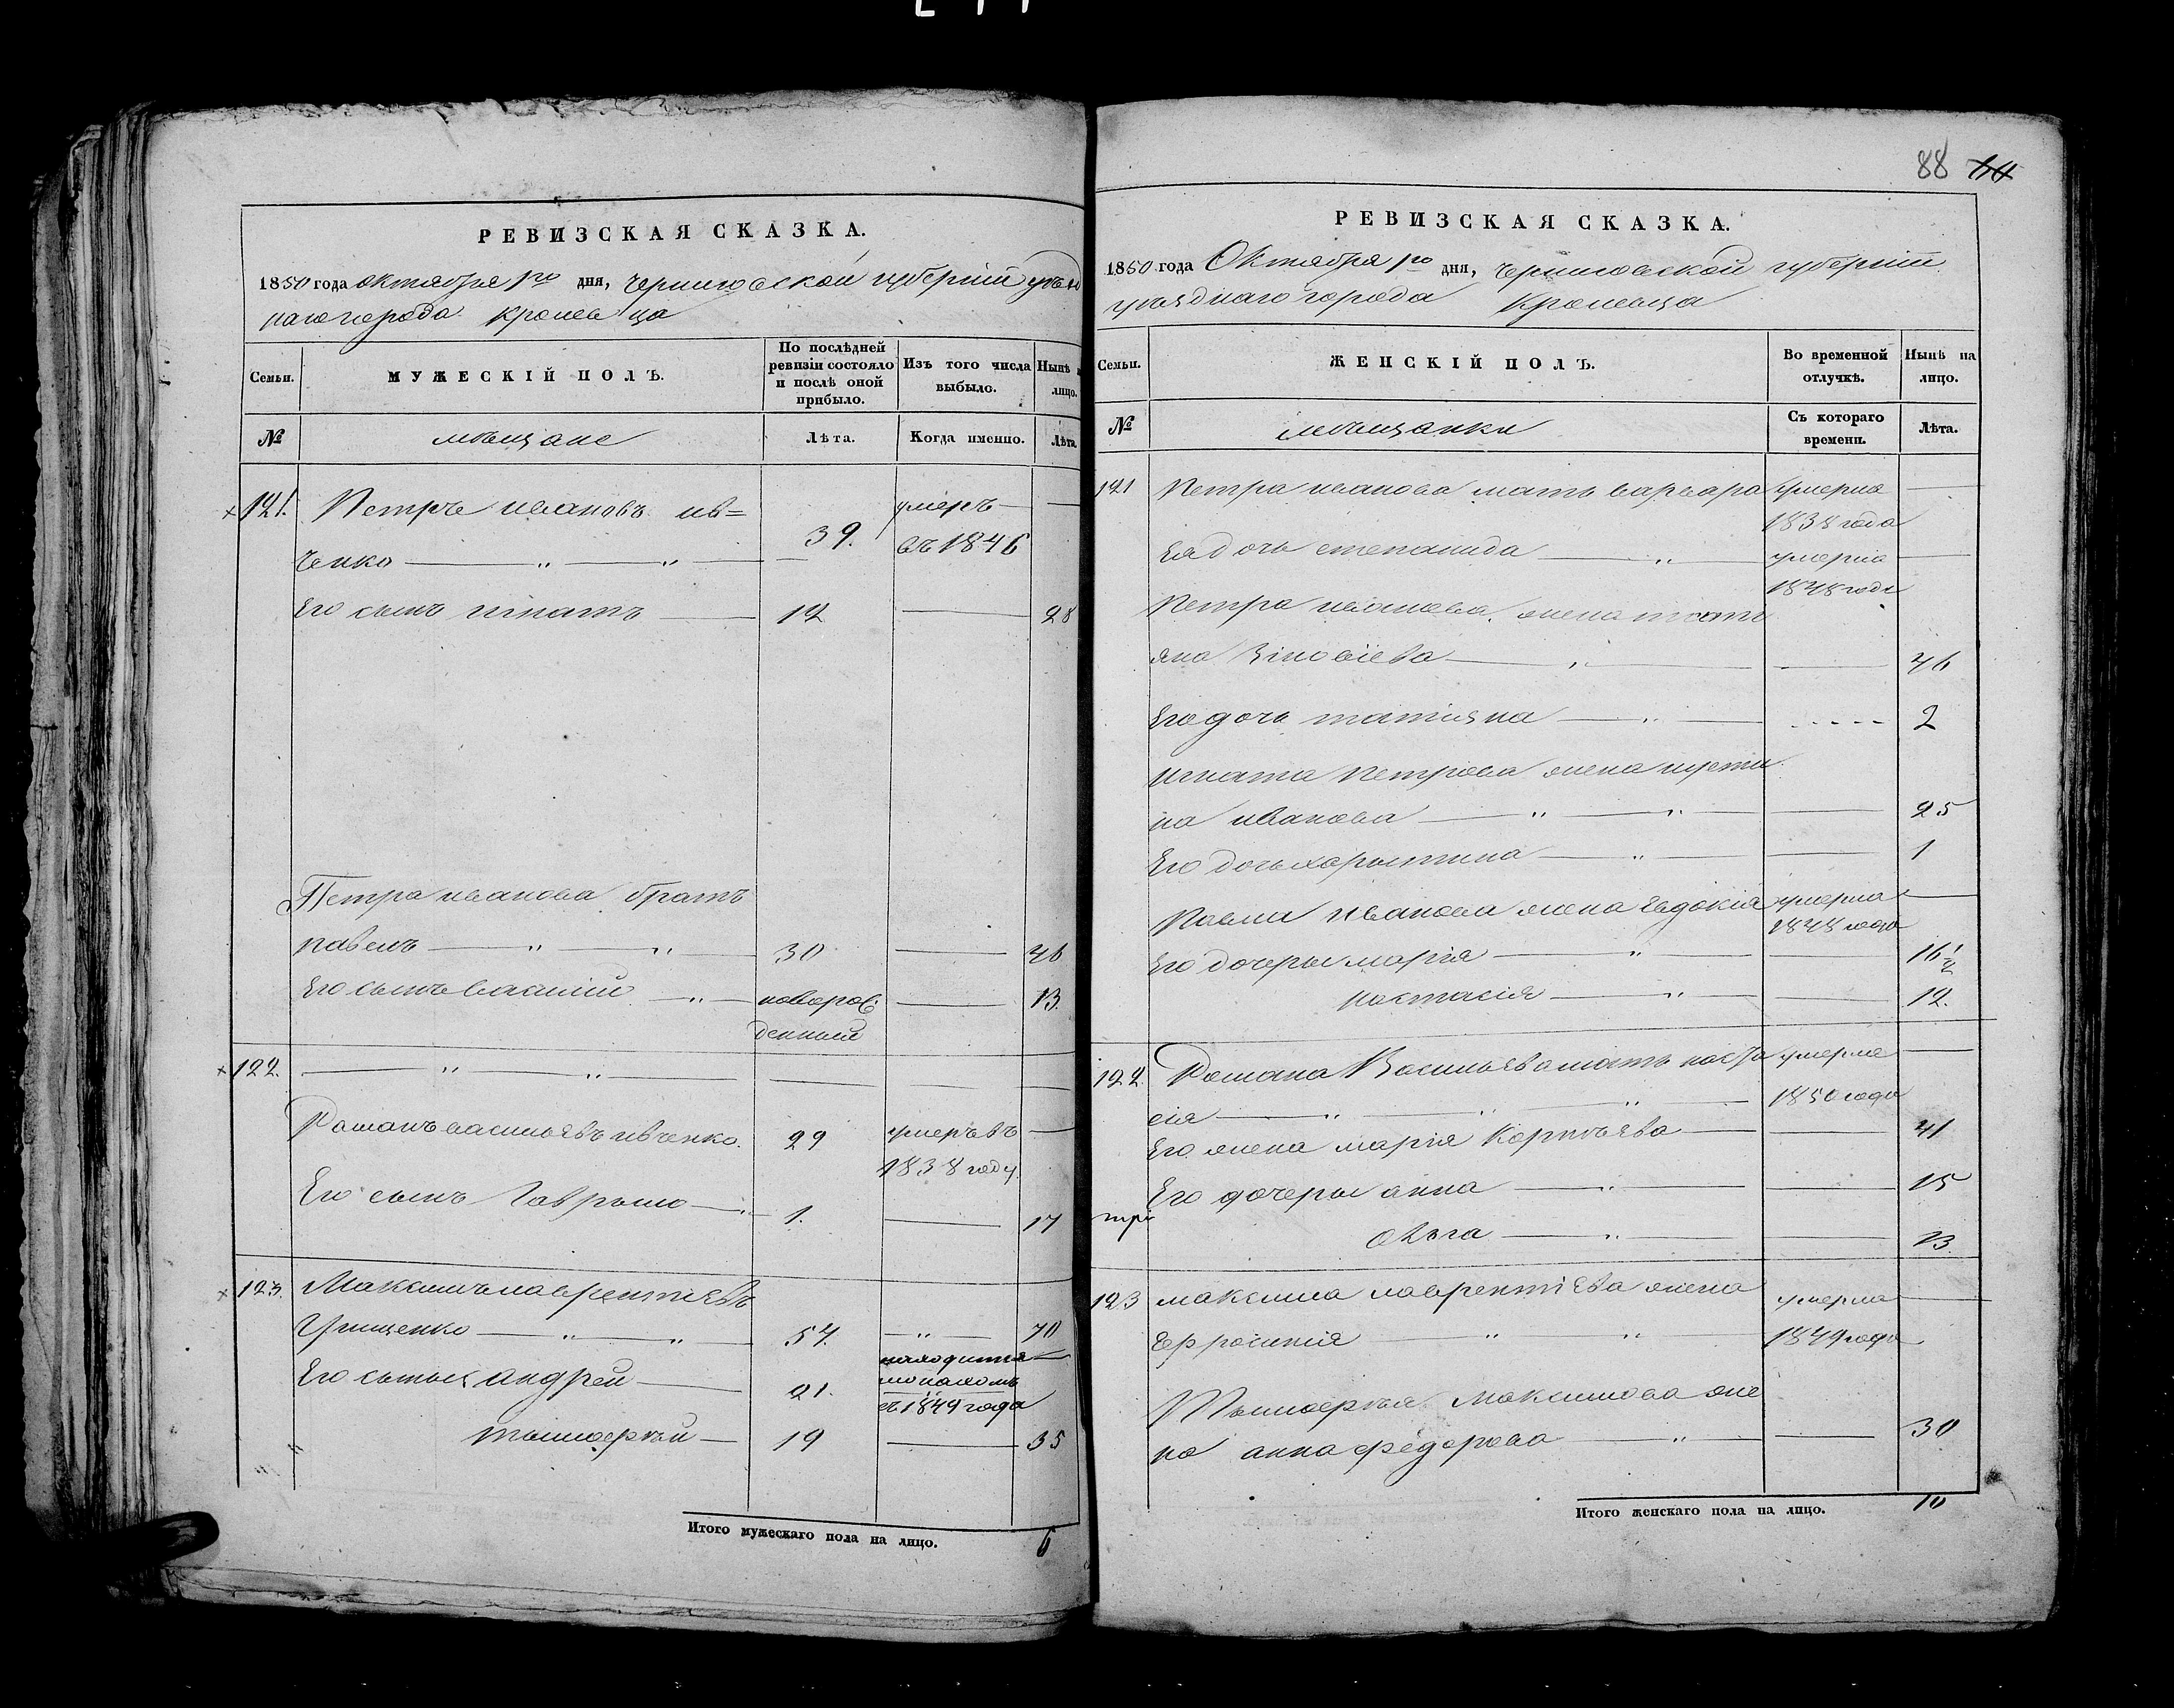 88
РЕВИЗСКАЯ СКАЗКА.
1850 года октября 1го дня, Черниговской губерніи уѣзд
наго города Кролевца
Семьи.
МУЖЕСКІЙ ПОЛЪ.
По послѣдней ревизіи состояло и послѣ оной прибыло.
Изъ того числа выбыло.
Нынѣ
лицо.
№
мѣщане
Лѣта.
Когда именно.
Лѣта.
121. Петръ Ивановъ Ив=
ченко 39. умеръ въ 1846
Его сынъ Игнатъ 12 28
Петра Иванова братъ
Павелъ 30 46
Его сынъ Василій новорож
денный 13.
122.
Романъ Васильевъ Ивченко. 29 умеръ въ
1838 году
Его сынъ Гаврыло 1. 17
123. Максимъ Лаврентіевъ
Грищенко 54. 70
Его сыновья Андрей 21. находится
въ 1849 года
Тымоѳей 19 35
Итого мужескаго пола на лицо. 6
РЕВИЗСКАЯ СКАЗКА.
1850 года Октября 1го дня, Черниговской губерніи
уѣзднаго города Кролевца
Семьи.
ЖЕНСКІЙ ПОЛЪ.
Во временной отлучкѣ.
Нынѣ на лицо.
№
мѣщанки
Съ котораго времени.
Лѣта.
121 Петра Иванова мать Варвара умерла
1838 года
Ея дочь Степанида умерла
1848 года
Петра Иванова жена Тать
яна Зіновіева 46
Его дочь Татияна 2
Игната Петрова жена Иусти
на Иванова 25
Его дочь Харытина 1
Павла Иванова жена Евдокія умерла
1848 года
Его дочеры Марія 16½
Настасія 12.
122. Романа Васильева мать Наста умерла
сія 1850 года
Его жена Марія Корнѣева 41
Его дочеры Анна 15
Ольга 13.
123 Максима Лаврентіева жена умерла
Ефросинія 1849 года
Тымоѳея Максимова же
на Анна Федорова 30
Итого женскаго пола на лицо. 10